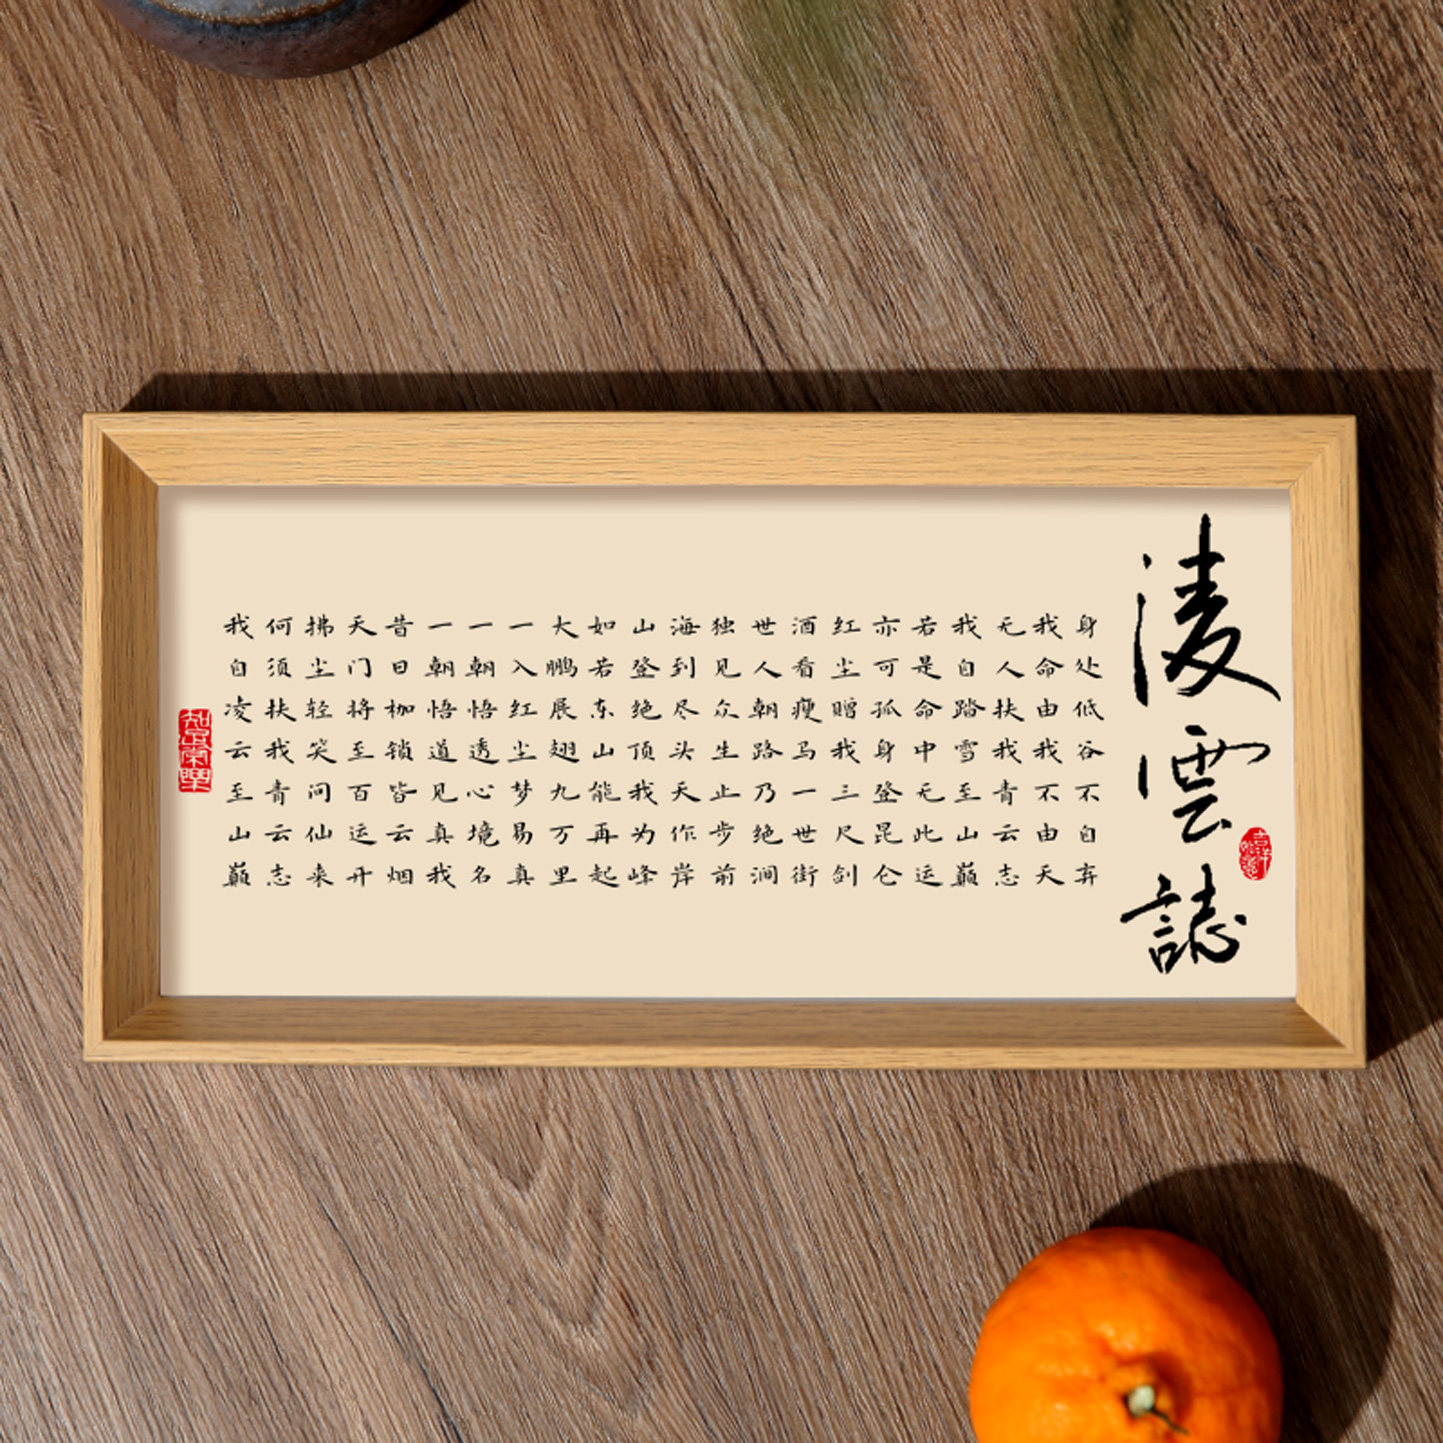 淩雲誌
身处低谷不自弃
我命由我不由天
无人扶我青云志
我自踏雪至山巅
若是命中无此运
亦可孤身登昆仑
红尘赠我三尺剑
酒看瘦马一世街
世人朝路乃绝涧
独见众生止步前
海到尽头天作岸
山登绝顶我为峰
如若东山能再起
大鹏展翅九万里
一入红尘梦易真
一朝悟透心境名
一朝悟道见真我
昔日枷锁皆云烟
天门将至百运开
拂尘轻笑问仙来
何须扶我青云志
我自凌云至山巅
知足常乐